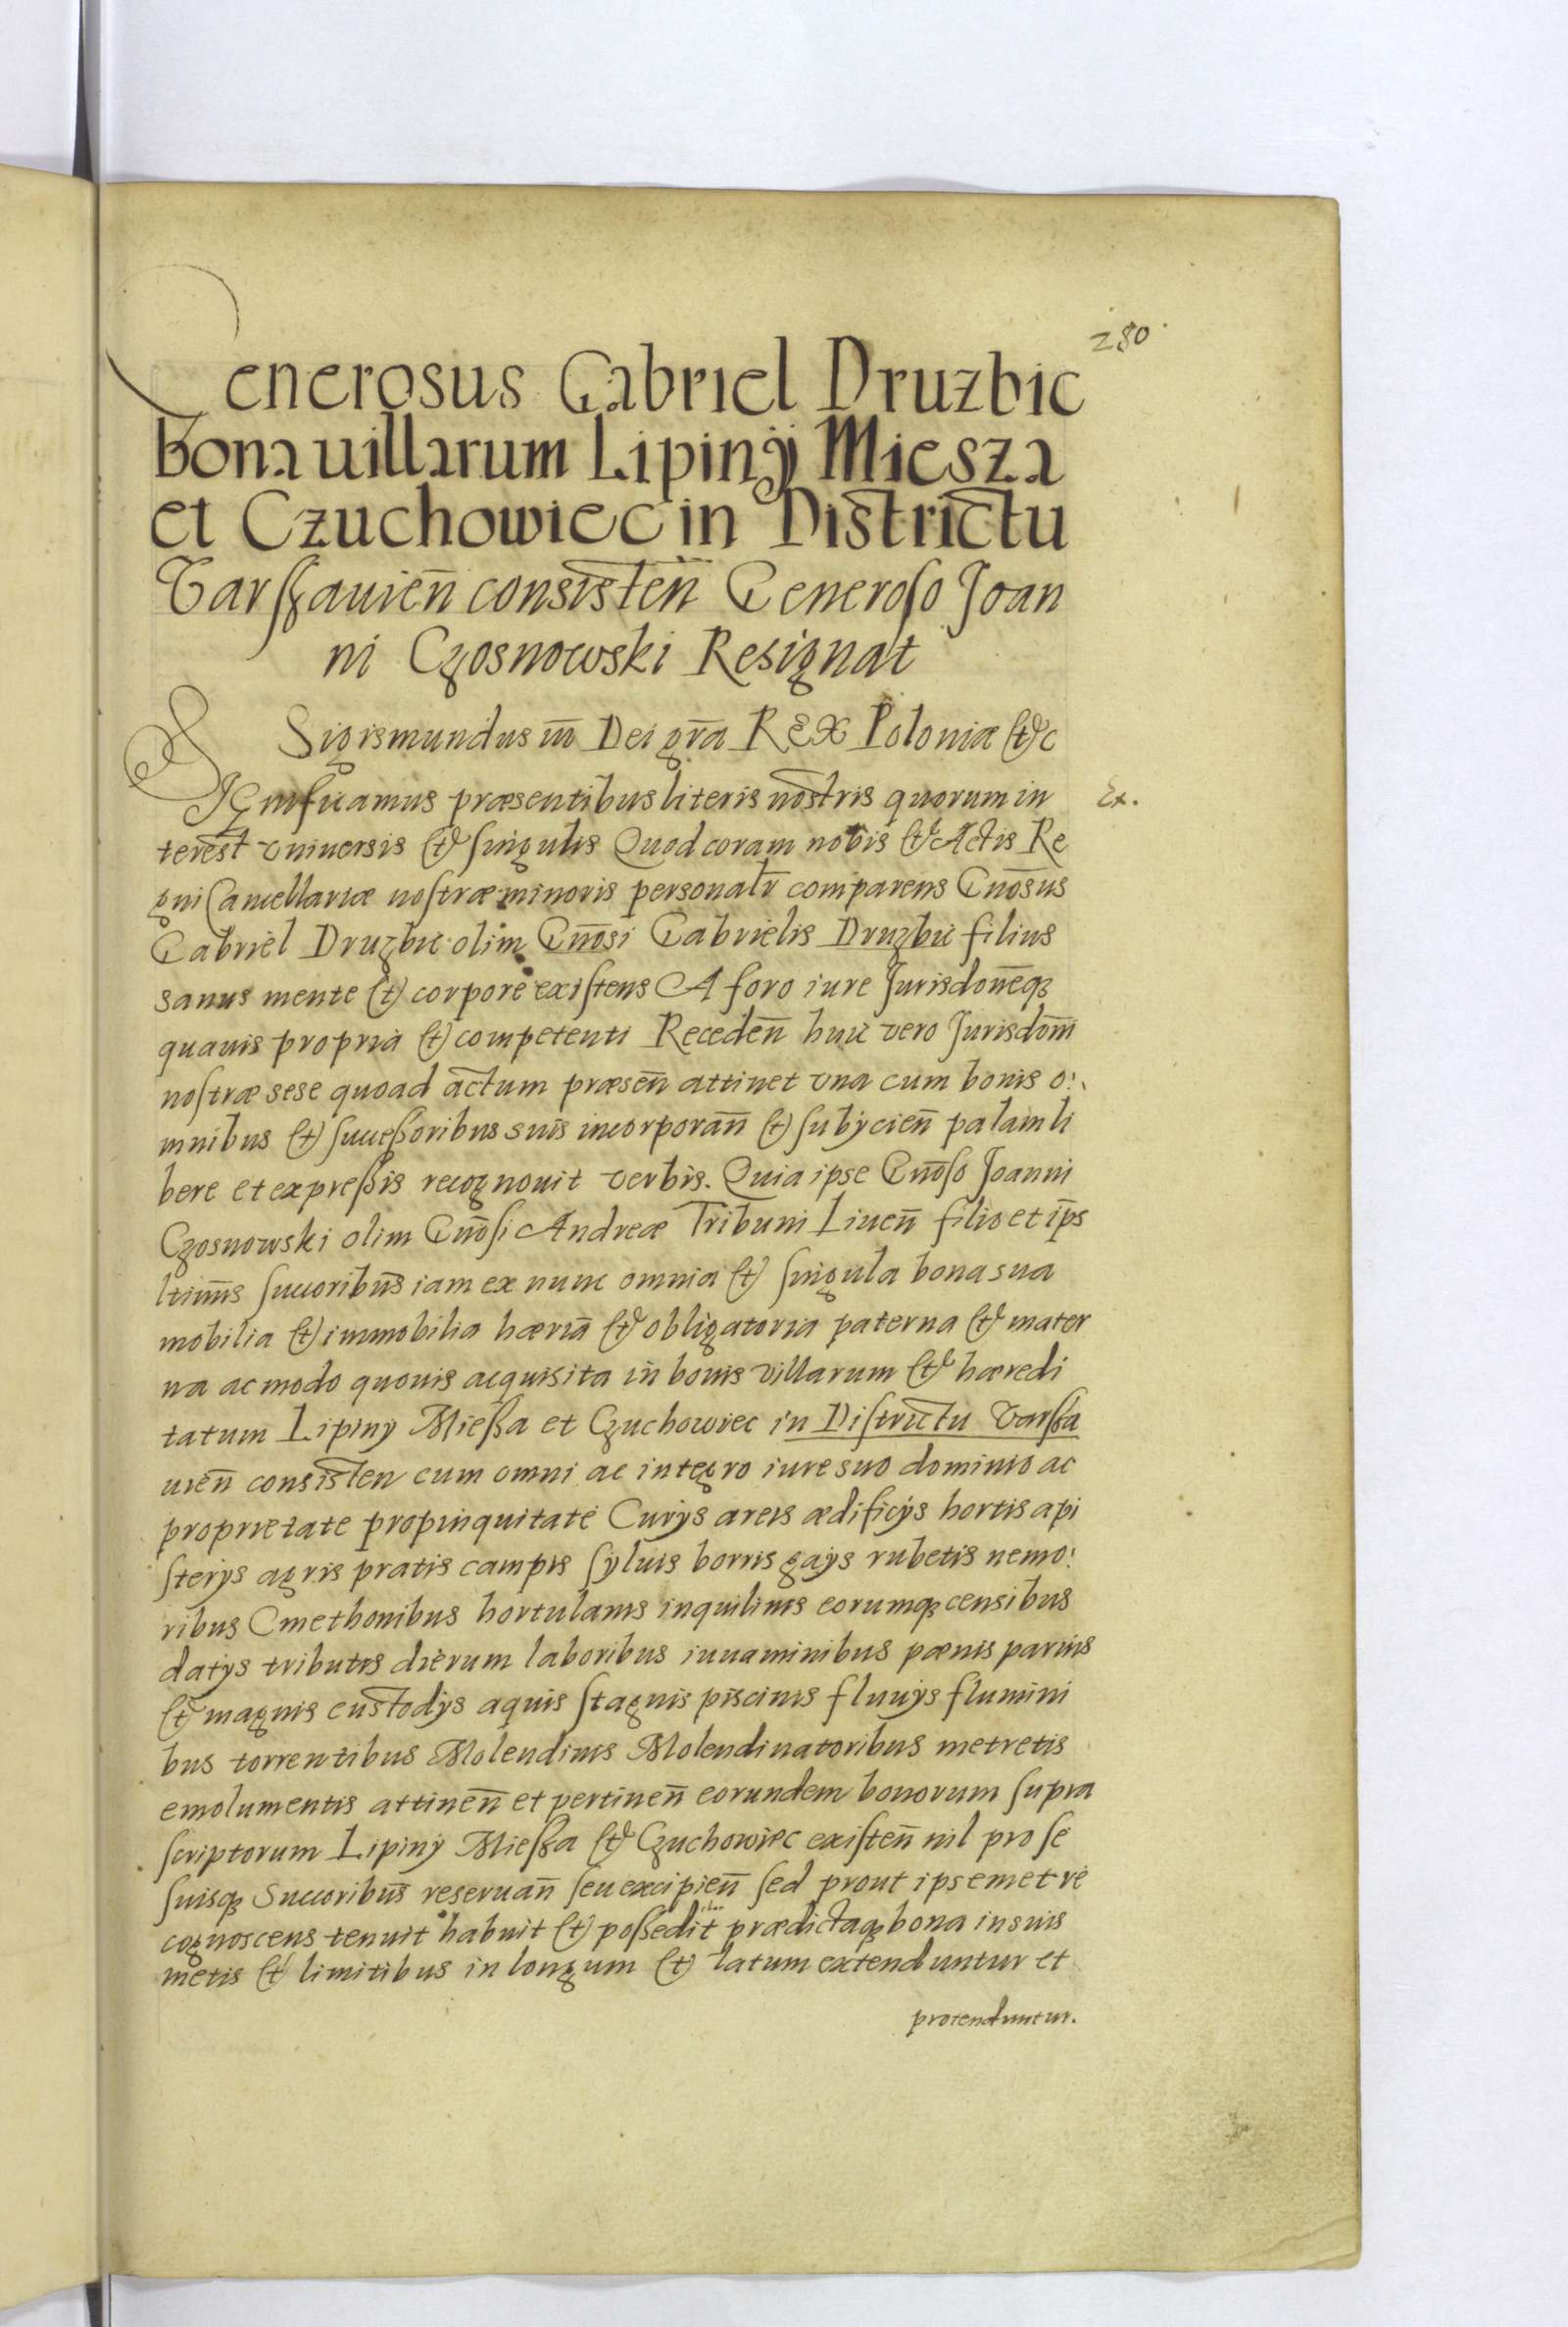 280
Generosus Gabriel Druzbic
bona uillarum Lipinÿ Miesza
et Czuchowiec in Districtu
Varsſzauien̄ consisten̄ Generoſo Joan
ni Czosnowski Resignat
Sigismundus iii Dei gr̄a REX Poloniæ &c
Significamus præsentibus literis nostris quorum in
Ex.
terest vniuersis & ſingulis Quod coram nobis & Actis Re
gni Cancellariæ noſtræ minoris personalr̄ comparens Gn̄osus
Gabriel Druzbic olim Gn̄osi Gabrielis Druzbic filius
sanus mente & corpore exiſtens A foro iure Jurisdon̄eqꝫ
quauis propria & competenti Receden̄ huic vero Jurisdoni̅
noſtræ sese quoad actum præsen̄ attinet vna cum bonis o:
mnibus & ſucceßoribus suis incorporan̄ & ſubÿcien̄ palam li
bere et expreßis recognouit verbis. Quia ipse Gn̄oſo Joanni
Czosnowski olim Gn̄oſi Andreæ Tribuni Liuen̄ filio et ip̄s
ltimis̄ ſuccoribus̄ iam ex nunc omnia & ſingula bona sua
mobilia & immobilia hæria̅ & obligatoria paterna & mater
na ac modo quouis acquisita in bonis villarum & hæredi
tatum Lipiny Mießa et Czuchowiec in Diſtrictu Varßa
uien̄ consisten cum omni ac integro iure suo dominio ac
proprietate propinquitate Curÿs areis ædificÿs hortis api
ſterÿs agris pratis campis ſÿluis borris gaÿs rubetis nemo:
ribus Cmethonibus hortulanis inquilinis eorumqꝫ censibus
datÿs tributis dierum laboribus iuuaminibus pœnis paruis
& magnis custodÿs aquis ſtagnis piscinis fluuÿs flumini
bus torrentibus Molendinis Molendinatoribus metretis
emolumentis attinen̄ et pertinen̄ eorundem bonorum ſupra
ſcriptorum Lipinÿ Mießa & Czuchowiec exiſten̄ nil pro ſe
ſuisqꝫ Succoribus̄ reseruan̄ ſeu excipien̄ ſed prout ipsemet re
cognoscens tenuit habuit & poßedit prædictaqꝫ bona in suis
metis & limitibus in longum & latum extenduntur et
protenduntur.